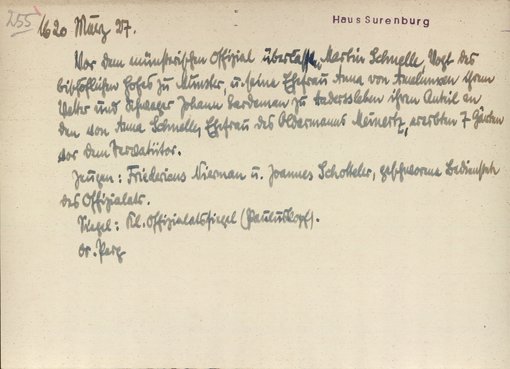 255
1620 März 27.
Haus Surenburg
Vor dem münstrischen Offizial überlassen Martin Schnelle, Vogt des
bischöflichen Hofes zu Münster, u. seine Ehefrau Anna von Amelunxen ihrem
Vetter und Schwager Johann zu ihren Anteil an
den von Anna Schnelle, Ehefrau des Oldermanns Meinertz, ererbten 7 Gärten
vor dem Servatiitor.
Zeugen: Fridericus Nierman u. Joannes Schotteler, geschworene Bedienstete
des Offizialats.
Siegel: Kl. Offizialatssiegel (Pauluskopf).
Or. Perg